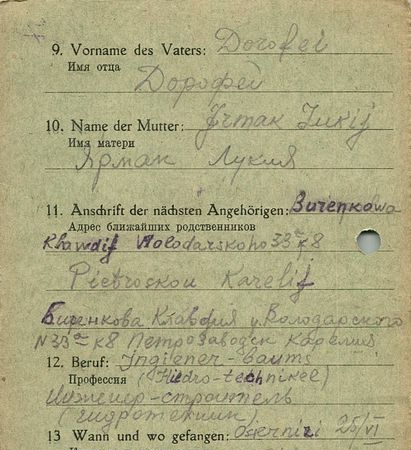 9. Vorname des Vaters: Dorofei
Имя отца
Дорофей
10. Name der Mutter:
Имя матери
Ярмак Лукия
11. Anschrift der nächsten Angehörigen:Burenkowa
Адрес ближайших родственников
Klawdij Wolodarskoho 33 к 8
Pietroskou Karelij
Клавдия у. Володарского
N 33 к 8 Петрозаводск Карелия
12. Beruf: Ingiener-baums
Профессия (Hidro-technikel)
Инженер-строитель
(гидротехник)
13 Wann und wo gefangen: 25/VI